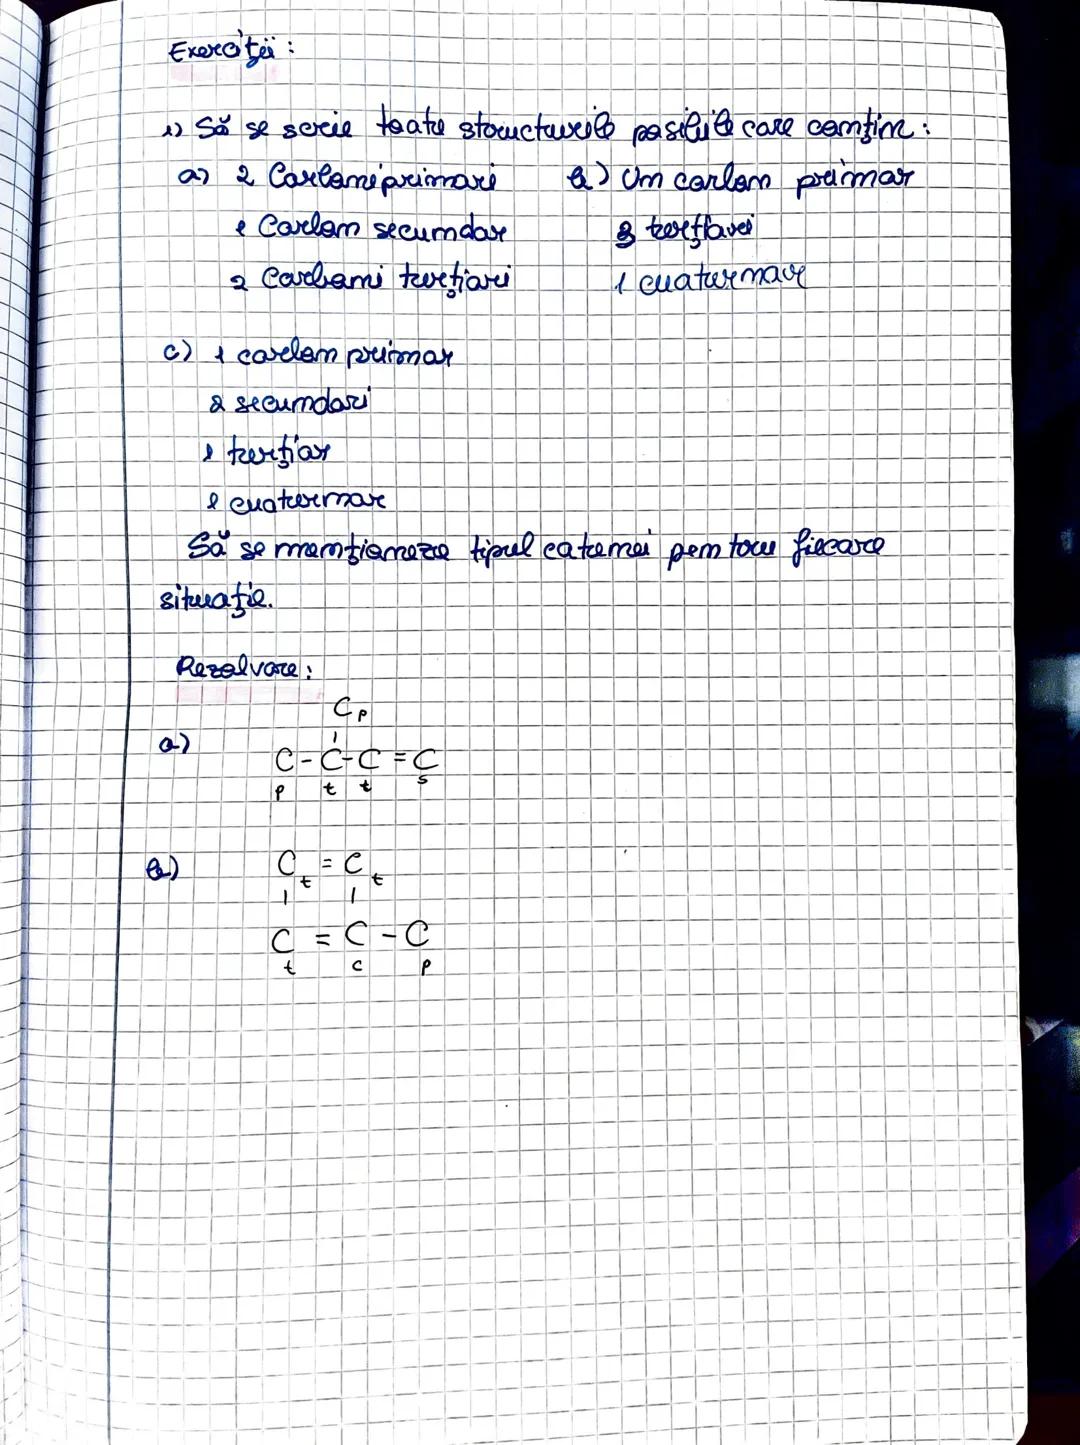 Exerciții:
1) Să se scrie toate structurile posibile care conțin:
a) 2 Carboni primari b) Un carbon primar
1 Carbon secundar 3 terțiari
2 Carboni terțiari 1 cuaternar
c) 1 carbon primar
2 secundari
1 terțiar
1 cuaternar
Să se menționeze tipul catenei pentru fiecare
situație.
Rezolvare:
C p
a) C - C - C = C
p t t s
b) C t = C t
C = C - C
t c p